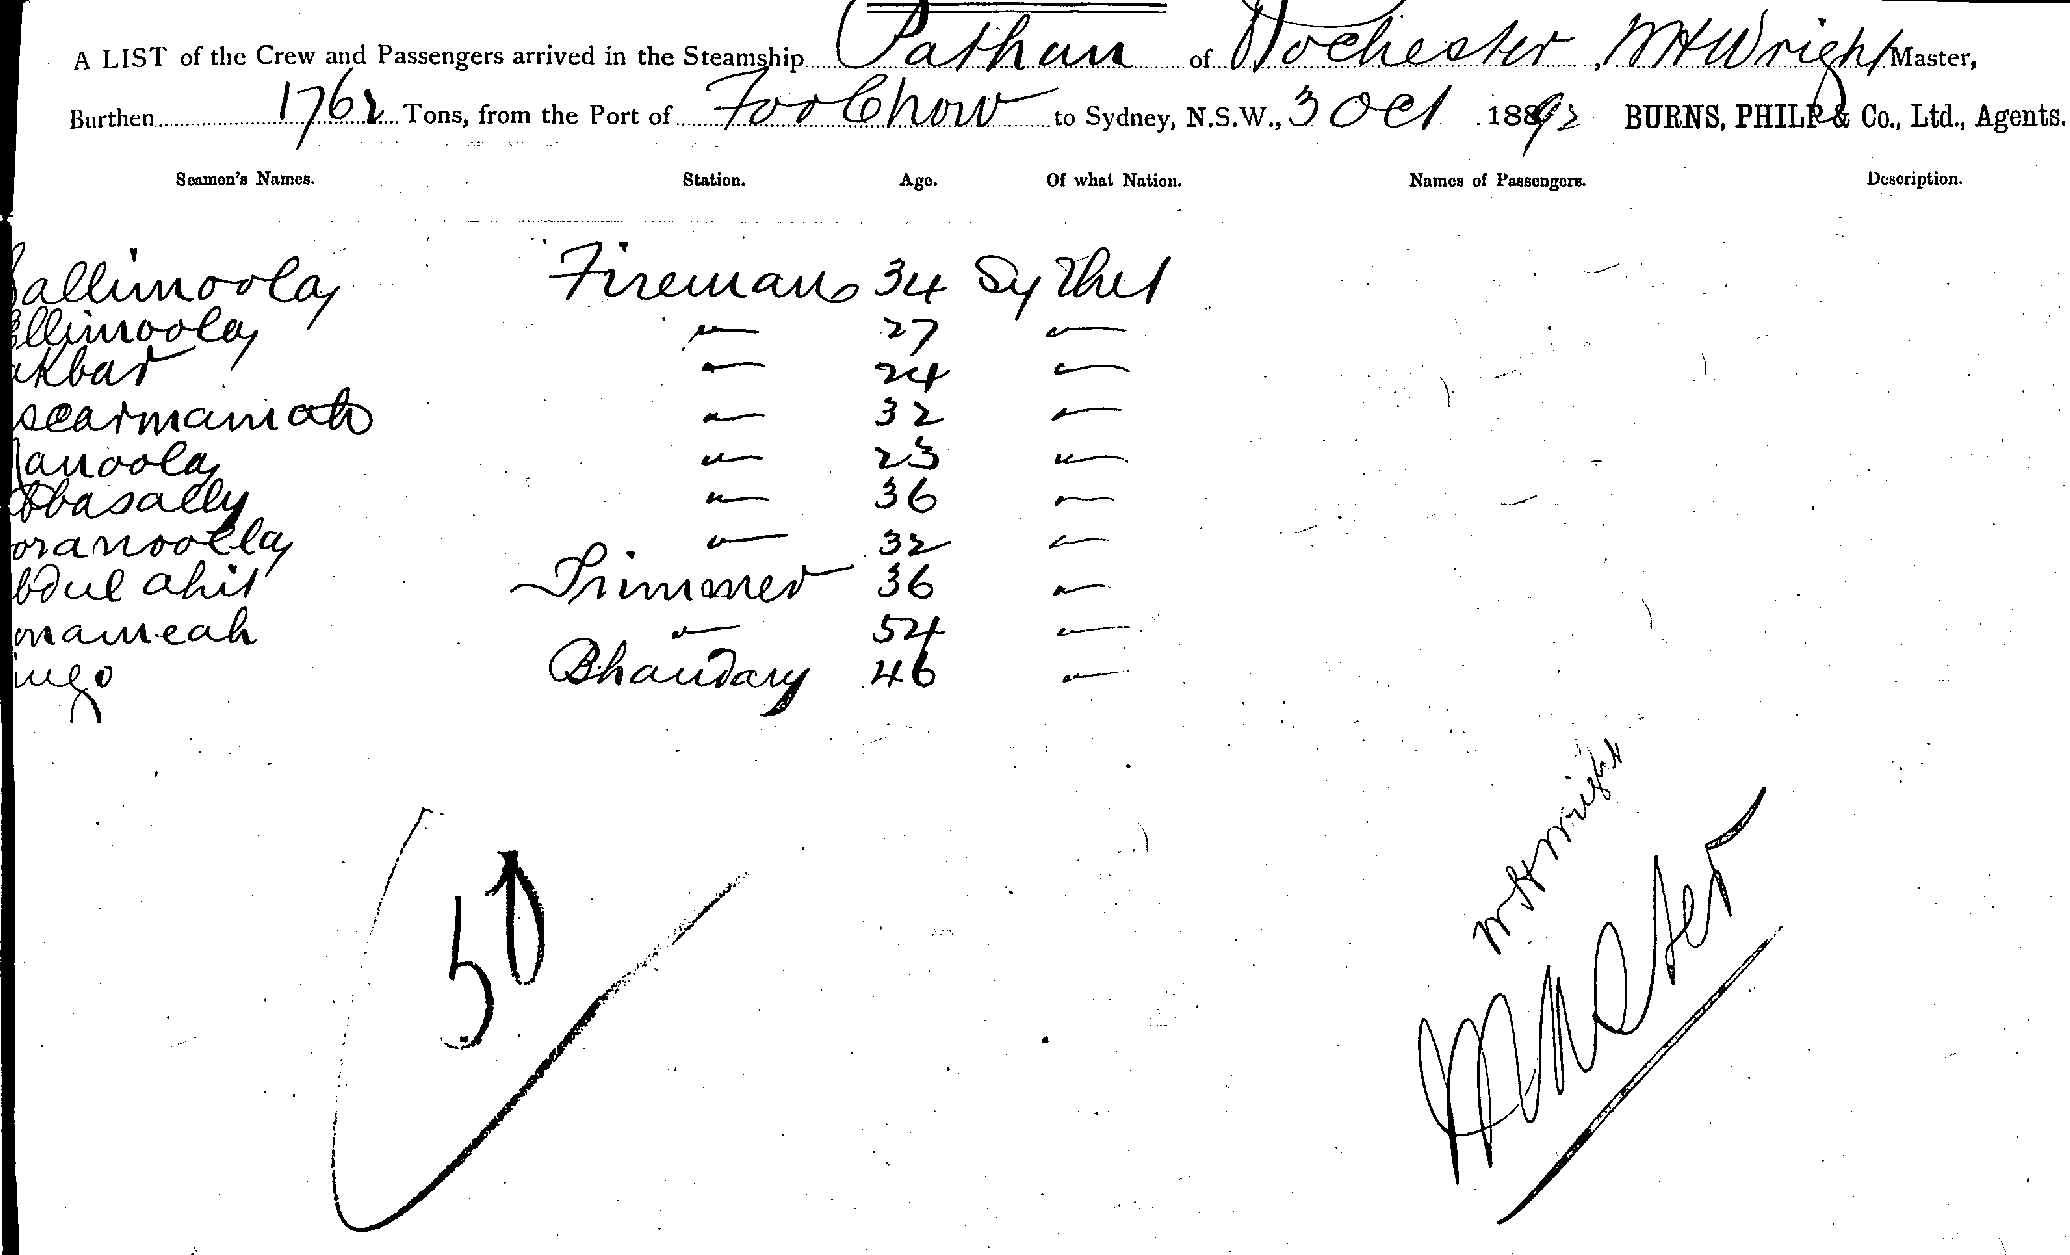 A LIST of the Crew and Passengers arrived in the Steamship Pathan of Rochester, WHWright Master,
Burthen 1762 Tons, from the Port of FooChow to Sydney, N.S.W., 3 Oct 1892 BURNS, PHILP & Co., Ltd., Agents.
Seamen's Names. Station. Age. Of what Nation. Names of Passengers. Description.
allimoolay Fireman 34 Sylhet
llimoolay — 27 —
akbar — 24 —
scarmamah — 32 —
anoolay — 23 —
Abbasally — 36 —
oranoollay — 32 —
bdul ahit Trimmer 36 —
mameah — 54 —
ingo Bhandary 46 —
50
WHWright
Master